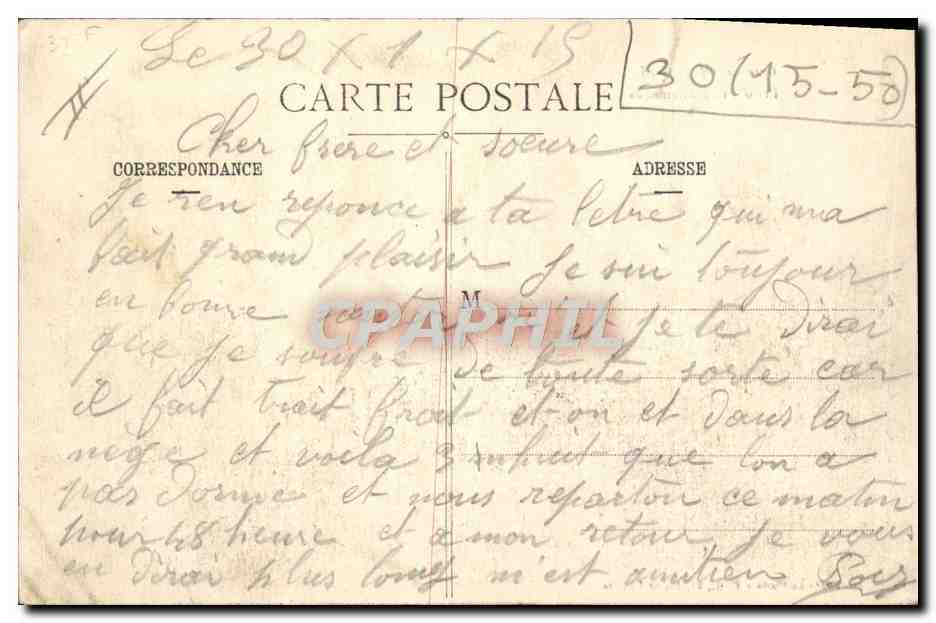 Le 30 x 1 x 15
30 (15-50)
CARTE POSTALE
Cher frere et soeure
CORRESPONDANCE
ADRESSE
Je ren reponce a ta letre qui ma
fait grand plaisir Je sui toujour
en bonne santé et Je te dirai
M
CPAPHIL
que Je soufre de toute sorte car
il fait trait froit et on et dans la
neige et voila 3 nhuit que lon a
pas dormé et nous reparton ce matin
pour 48 heure et a mon retour Je vous
en dirai plus long m'est